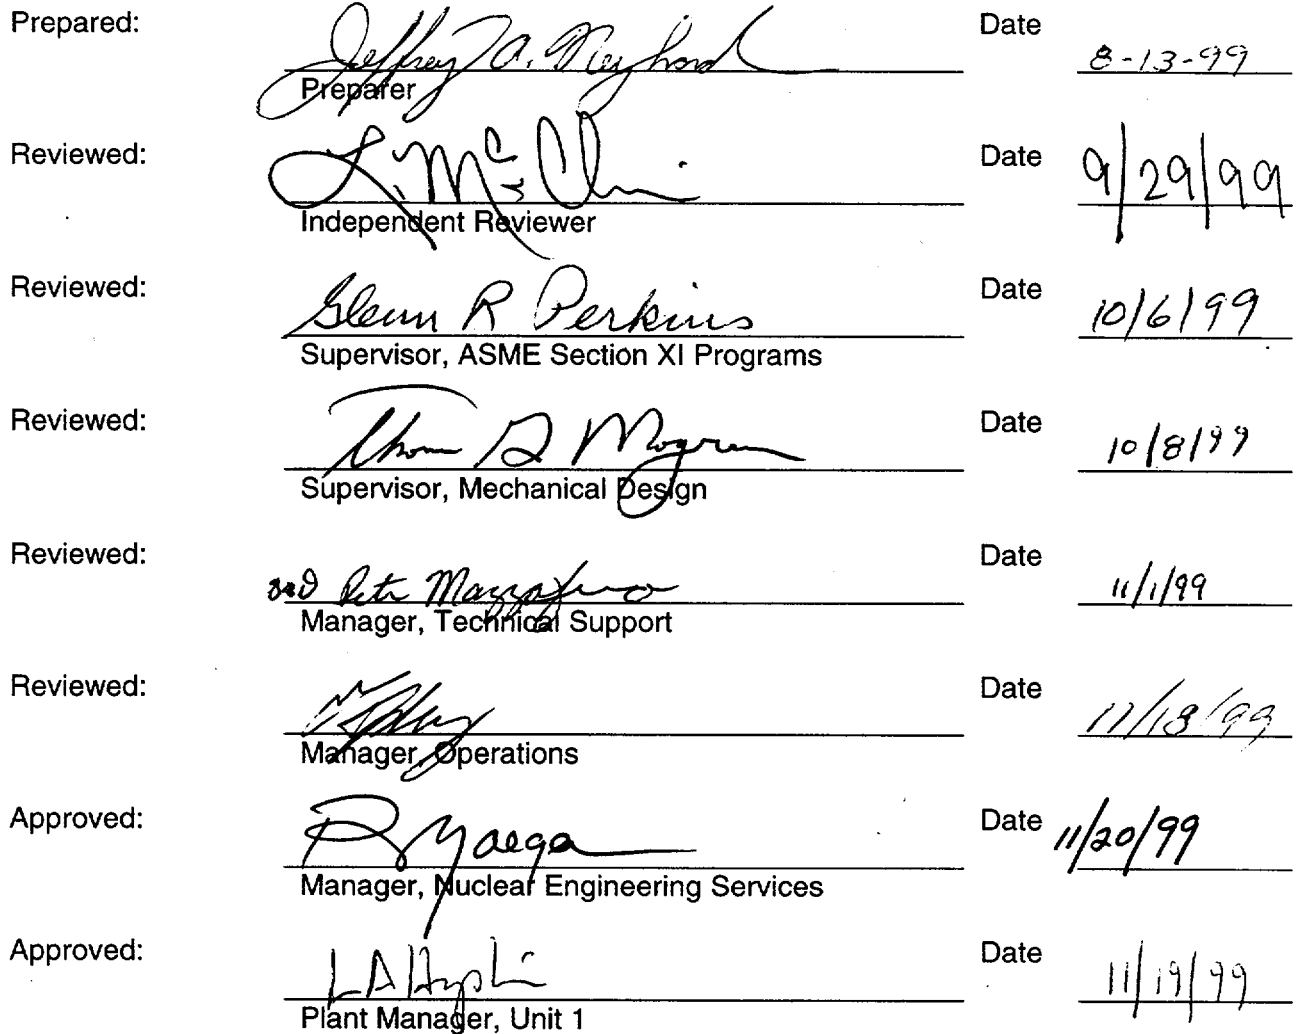 Prepared: Jeffrey A. Date 8-13-99
Preparer
Reviewed: L. Date 9/29/99
Independent Reviewer
Reviewed: Glenn R Perkins Date 10/6/99
Supervisor, ASME Section XI Programs
Reviewed: Date 10/8/99
Supervisor, Mechanical Design
Reviewed: Date 11/1/99
Manager, Technical Support
Reviewed: Date 11/18/99
Manager, Operations
Approved: Date 11/20/99
Manager, Nuclear Engineering Services
Approved: L A Date 11/19/99
Plant Manager, Unit 1